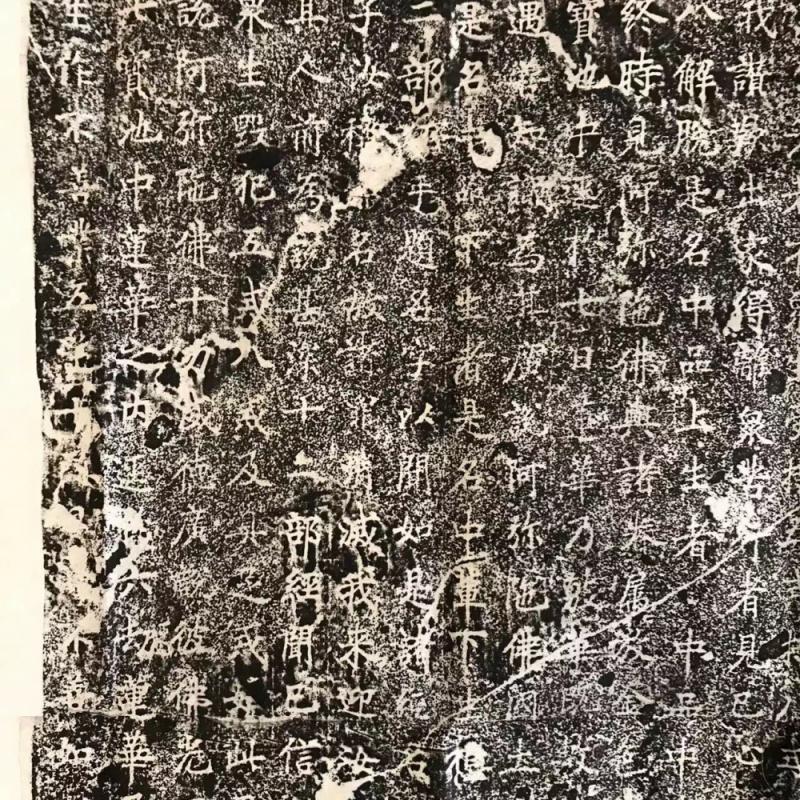 讃歎出家得離衆苦行者見已心
解脫是名中品上生者中品中
終時見阿弥陁佛與諸眷属放金色
寶池中逕於七日蓮華乃敷華既敷
遇善知識為其廣說阿弥陁佛國土
是名中品下生者是名中輩下生想
二部手題名字以聞如是諸經名
子汝稱名故諸罪消滅我来迎汝
其人前為說甚深十二部經聞已信
衆生毀犯五戒八戒及具足戒如此
說阿弥陁佛十力威德廣說彼佛光
七寶池中蓮華之内逕於六劫蓮華
生作不善業五逆十惡不善如